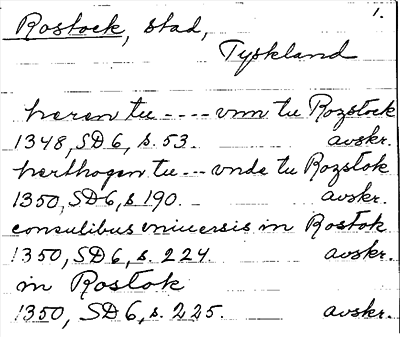 1.
Rostock, stad,
Tyskland
heren tu ---- vnn tu Rozstock
1348, SD 6, s. 53. avskr.
herthogen tu --- vnde tu Rozstok
1350, SD 6, s. 190. avskr.
consulibus vniuersis in Rostok
1350, SD 6, s. 224. avskr.
in Rostok
1350, SD 6, s. 225. avskr.